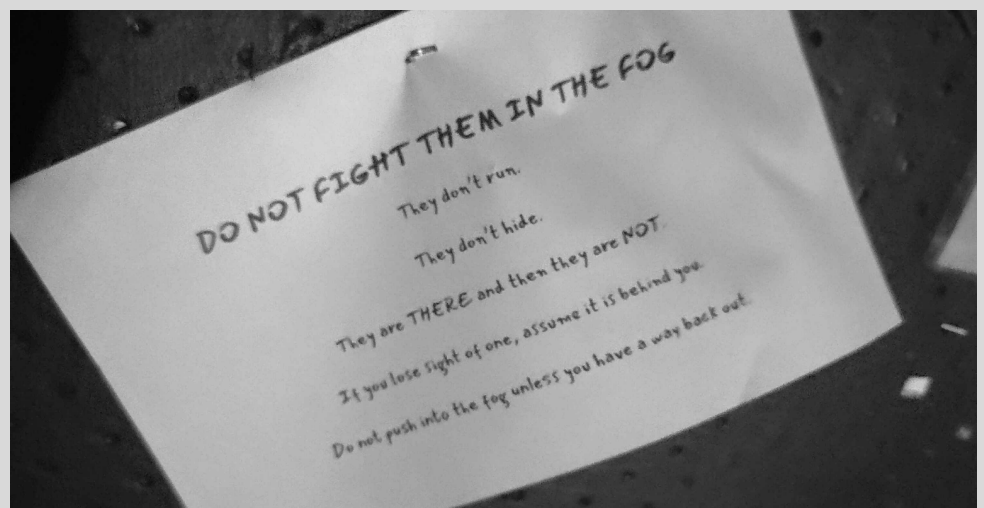 DO NOT FIGHT THEM IN THE FOG
They don't run.
They don't hide.
They are THERE and then they are NOT.
If you lose sight of one, assume it is behind you.
Do not push into the fog unless you have a way back out.